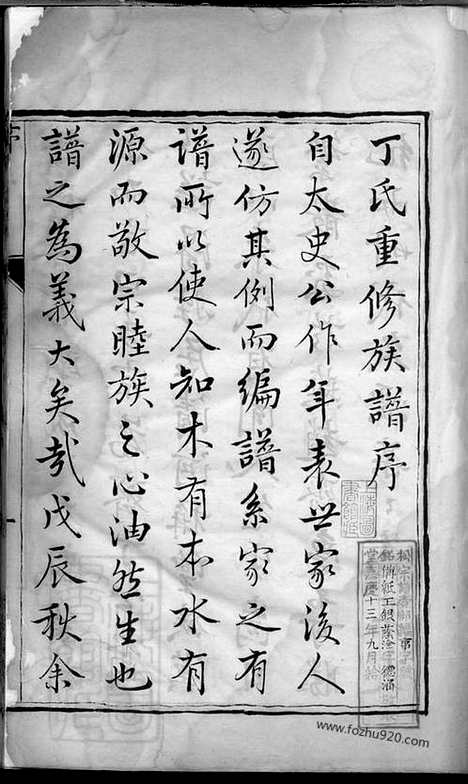 丁氏重修族譜序
自太史公作年表世家後人
遂仿其例而編譜系家之有
譜所以使人知木有本水有
源而敬宗睦族之心油然生也
譜之為義大矣哉戊辰秋余
上海圖
書館藏
嘉慶十三年九月
www.fozhu920.com